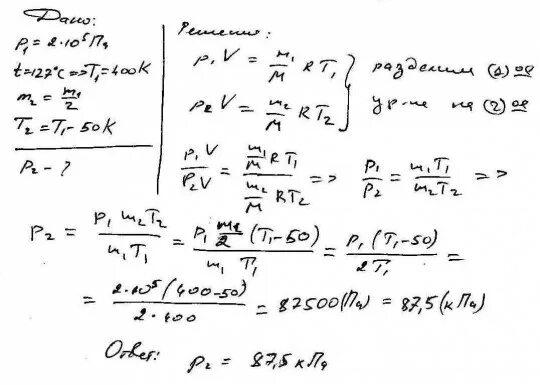 Дано:
p₁ = 2·10⁵ Па
t = 127°C => T₁ = 400K
m₂ = m₁/2
T₂ = T₁ - 50K
p₂ - ?
Решение:
p₁V = m₁/M RT₁
p₂V = m₂/M RT₂
} разделим (1)ое
ур-ие на (2)ое
p₁V/p₂V = (m₁/M RT₁)/(m₂/M RT₂) => p₁/p₂ = m₁T₁/m₂T₂ =>
p₂ = p₁m₂T₂/m₁T₁ = p₁ m₁/2 (T₁-50)/m₁T₁ = p₁(T₁-50)/2T₁ =
= 2·10⁵(400-50)/2·400 = 87500 (Па) = 87,5 (кПа)
Ответ: p₂ = 87,5 кПа